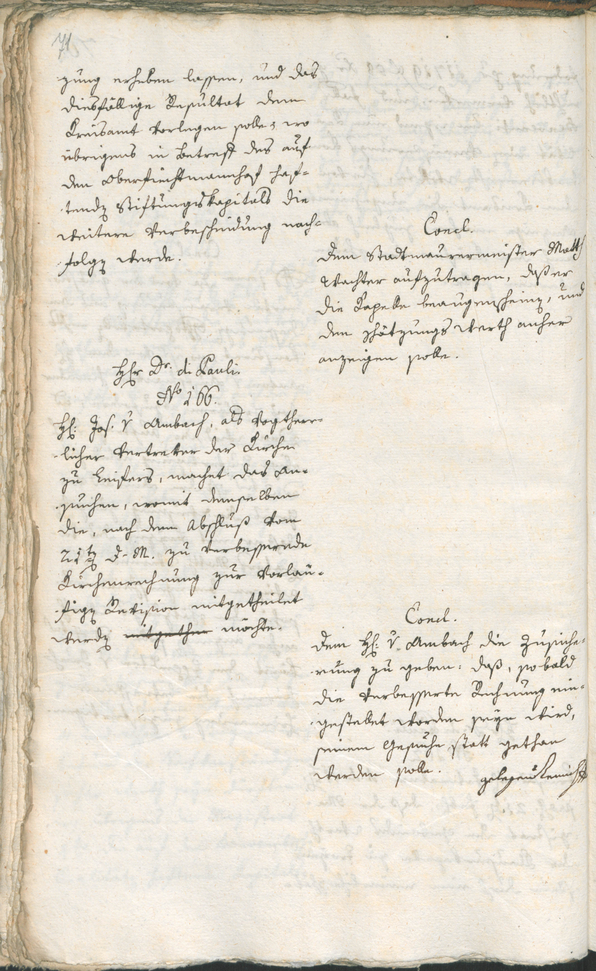 71
zung erheben lassen, und das
diesfällige Resultat dem
Kreisamt vorlegen solle; wo
übrigens in Betreff des auf
dem Oberfuchsmannhof haf-
tendꝫ Stiftungskapitals die
weitere Verbescheidung nach-
folgꝫ werde.
Concl.
dem Stadtmaurermeister Matth
Wachter aufzutragen, daß er
die Kapelle beaugenscheinꝫ, und
den Schätzungs Werth anher
anzeigen solle.
Hhr Dr. di Pauli
No 166.
H: Jos. v Ambach, als Vogtherr-
licher Vertreter der Kirche
zu Leifers, machet das An-
suchen, womit demselben
die, nach dem Abschluß vom
D. M. zu verbessernde
Kirchenrechnung zur vorläu-
figꝫ Revision mitgetheilet
werdꝫ möchte.
Concl.
dem H: v. Ambach die Zusiche-
rung zu geben: daß, sobald
die verbesserte Rechnung ein-
gestellet worden seyn wird,
seinem Gesuche statt gethan
werden solle.